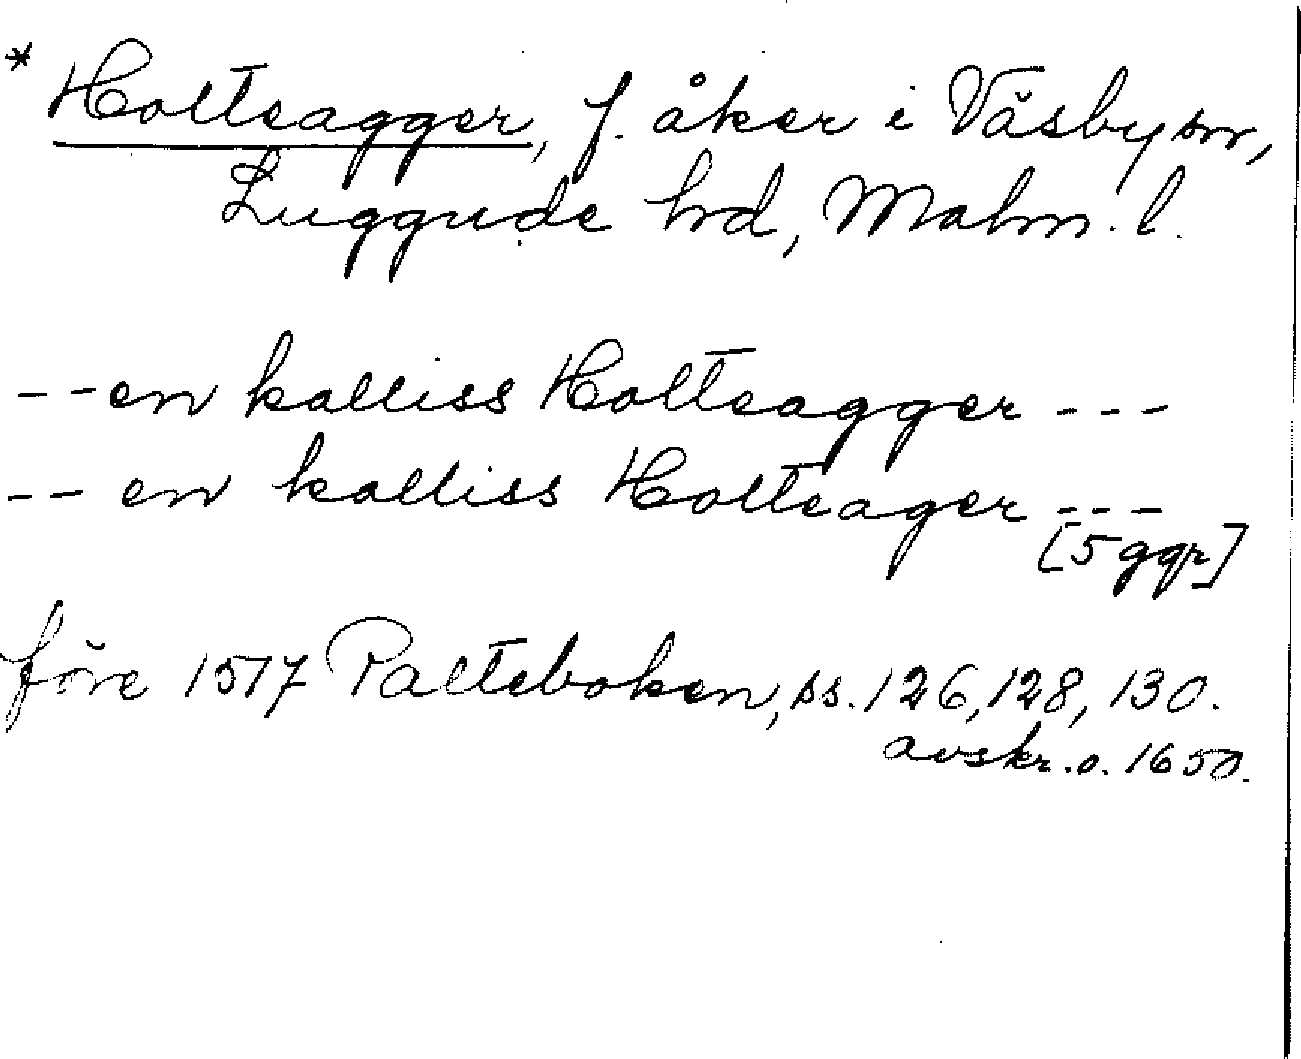 * Holteagger, f. åker i Väsby sn,
Luggude hd, Malm. l.
- - en kalliss Holteagger - - -
- - en kalliss Holteager - - -
[5 ggr]
före 1517 Palteboken, ss. 126, 128, 130.
avskr. o. 1650.